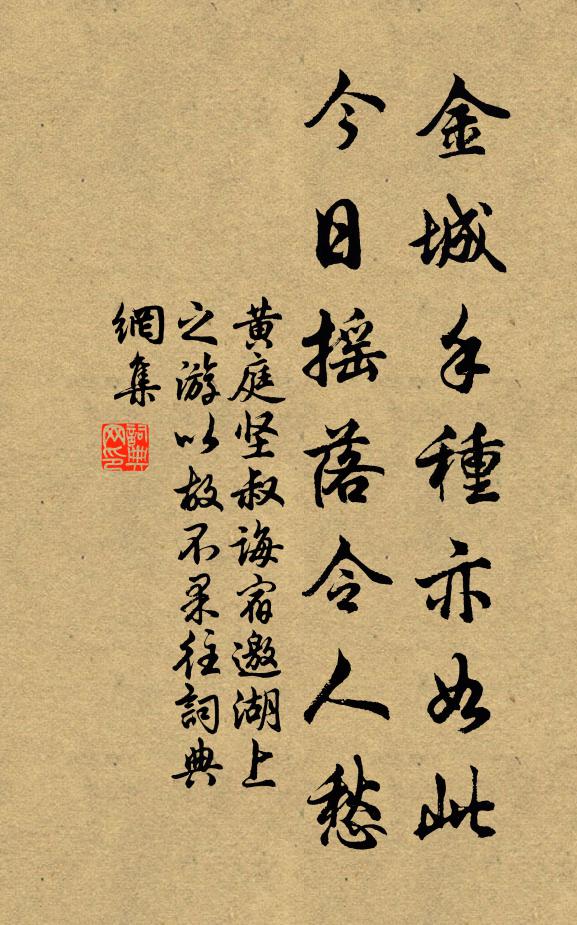 金城手種亦如此
今日摇落令人愁
黄庭坚叔誨宿邀湖上
之游以故不果往詞典
網集
詞典
网印